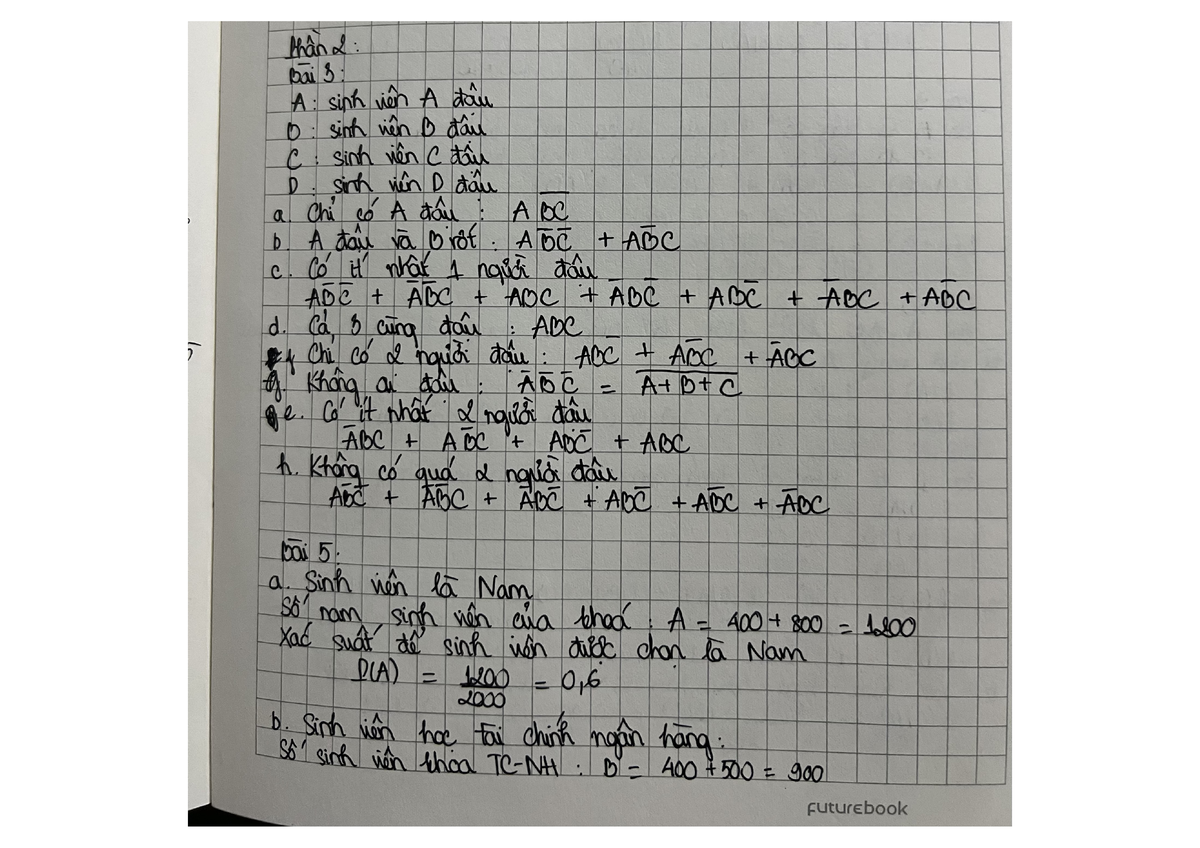 Phần 2:
Bài 3:
A: sinh viên A đậu
B: sinh viên B đậu
C: sinh viên C đậu
D: sinh viên D đậu
a. Chỉ có A đậu : A B̅C̅
b. A đậu và B rớt: AB̅C̅ + AB̅C
c. Có ít nhất 1 người đậu
AB̅C̅ + A̅B̅C + ABC + A̅BC̅ + ABC̅ + A̅BC + AB̅C
d. Cả 3 cùng đậu : ABC
f Chỉ có 2 người đậu: ABC̅ + AB̅C + A̅BC
g. Không ai đậu : A̅ B̅ C̅ = \overline{A+B+C}
e. Có ít nhất 2 người đậu
A̅BC + AB̅C + ABC̅ + ABC
h. Không có quá 2 người đậu
AB̅C̅ + A̅B̅C + A̅BC̅ + ABC̅ + AB̅C + A̅BC
Bài 5:
a. Sinh viên là Nam
Số nam sinh viên của khoá: A = 400 + 800 = 1200
Xác suất để sinh viên được chọn là Nam
P(A) = 1200/2000 = 0,6
b. Sinh viên học tài chính ngân hàng:
Số sinh viên khoa TC-NH : B = 400 + 500 = 900
FUTUREBOOK